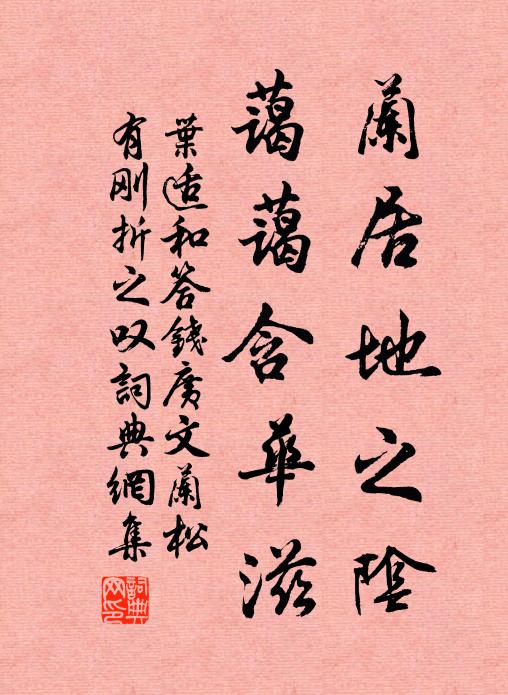 蘭居地之陰
藹藹含華滋
葉适和答錢广文蘭松
有刚折之叹詞典網集
詞典網印